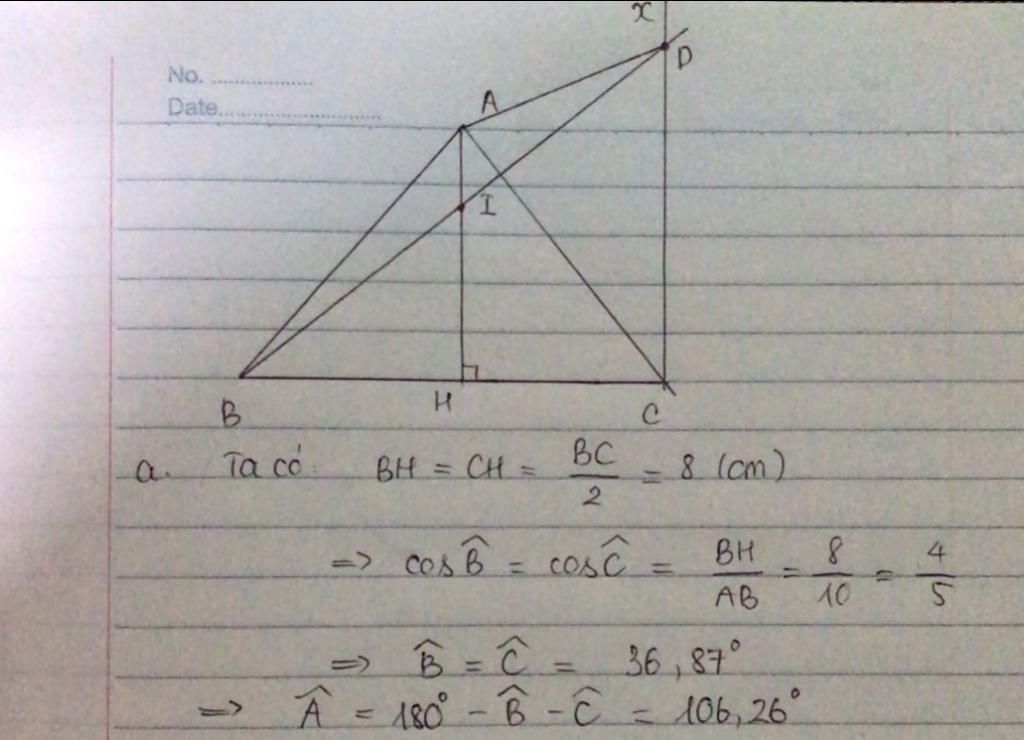 x
D
No. ....................
Date................................
A
I
B H C
a. Ta có: BH = CH = BC/2 = 8 (cm)
=> cos B̂ = cos Ĉ = BH/AB = 8/10 = 4/5
=> B̂ = Ĉ = 36,87°
=> Â = 180° - B̂ - Ĉ = 106,26°